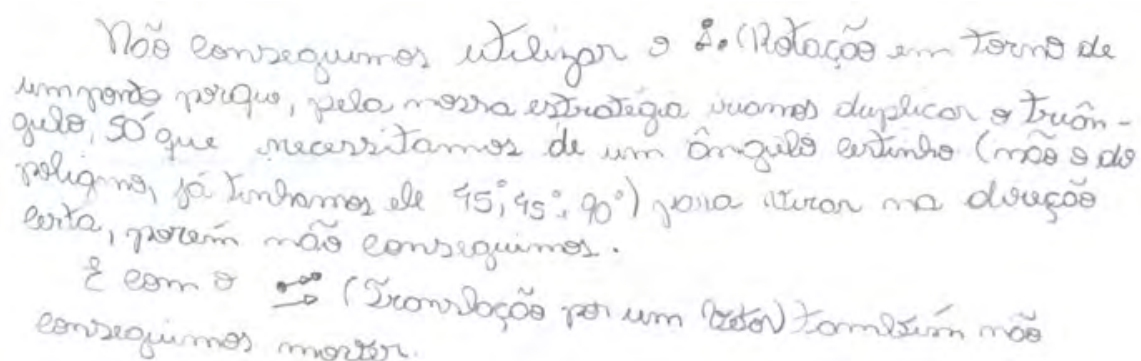 Não conseguimos utilizar o (Rotação em Torno de
um ponto porque, pela nossa estratégia iriamos duplicar o triân-
gulo, só que necessitamos de um ângulo certinho (não o do
poligno, já tinhamos ele 45°, 45°, 90°) para virar na direção
certa, porém não conseguimos.
E com o (Translação por um Vetor) também não
conseguimos mover.